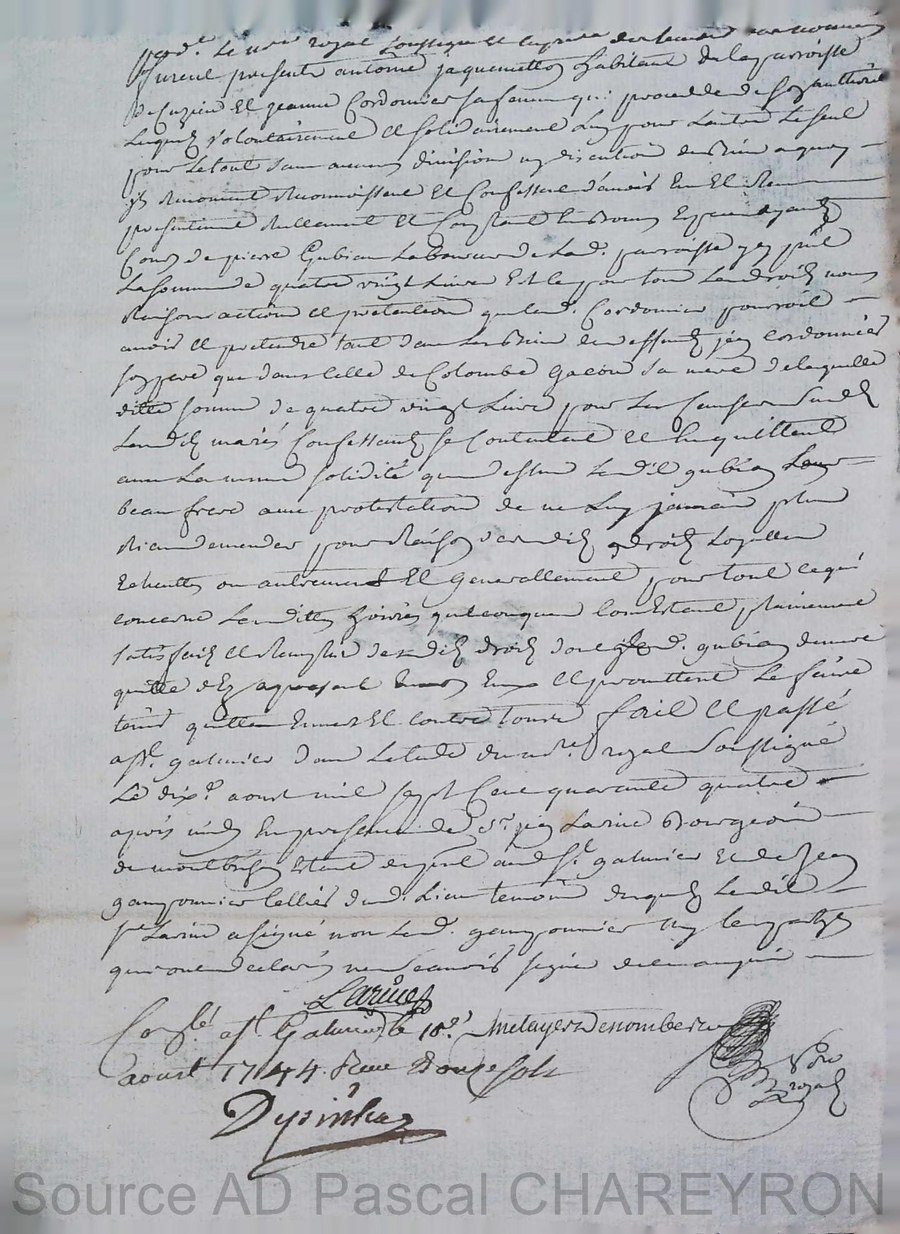 pard.t le no.re royal soussigné et en presence des temoins
furent presents antoine jaquemetton habitant de la parroisse
de Cuzieu et jeanne Cordonnier sa femme qui procedde de son authorité
Lesquels volontairement et solidairement L'un pour L'autre Le seul
pour Le tout sans aucune division ny discution de bien a quoy
ils Renoncent Reconnoissent et Confessent d'avoir Eu et Receu
presentement Reellement et Comptant En bonnes Especes ayant
Cours de pierre Gubian Laboureur de Lad. parroisse y pnt
La somme de quatre vingt Livres Et Ce pour tous Les droits noms
Raisons actions et pretentions que lad. Cordonnier pourroit
avoir et pretendre tant dans Les Biens de deffunt jean Cordonnier
son pere que dans Celle de Colombe gacon sa mere de laquelle
ditte somme de quatre vingt Livres pour Les Causes susd.
Lesdits mariés Confessants se Contentent et En quittent
avec La meme solidité que dessus Ledit gubian Leur
beau frere avec protestation de ne Luy jamais plus
Rien demender pour Raison desdits droits Loyaux
Echeutes ou autrement Et Generallement pour tout ce qui
concerne Lesdittes hoiries quelconques Com Estant plainement
satisfaits et Remplis desdits droits dont Led. gubian demeure
quitte d'Es a present Envers Eux Et promettent Le faire
tenir quitte Envers Et Contre tous fait et passé
a St. galmier dans L'etude du no.re royal soussigné
Le dix.e aoust mil sept Cent quarante quatre
après midy En presence de Sr. jean Larive Bourgeois
de montbrison Etant de pnt aud St. galmier Et de jean
gamponnier sellier dud. Lieu temoins desquels Ledit
Sr. Larive a signé non Led. gamponnier ny les partyes
qui ont declarés ne scavoir signer de ce enquis
Larive
Conslé a St. Galmier le 18.e Metayer Denombert
aoust 1744. Reçu douze sols
No.re
royal
Source AD Pascal CHAREYRON